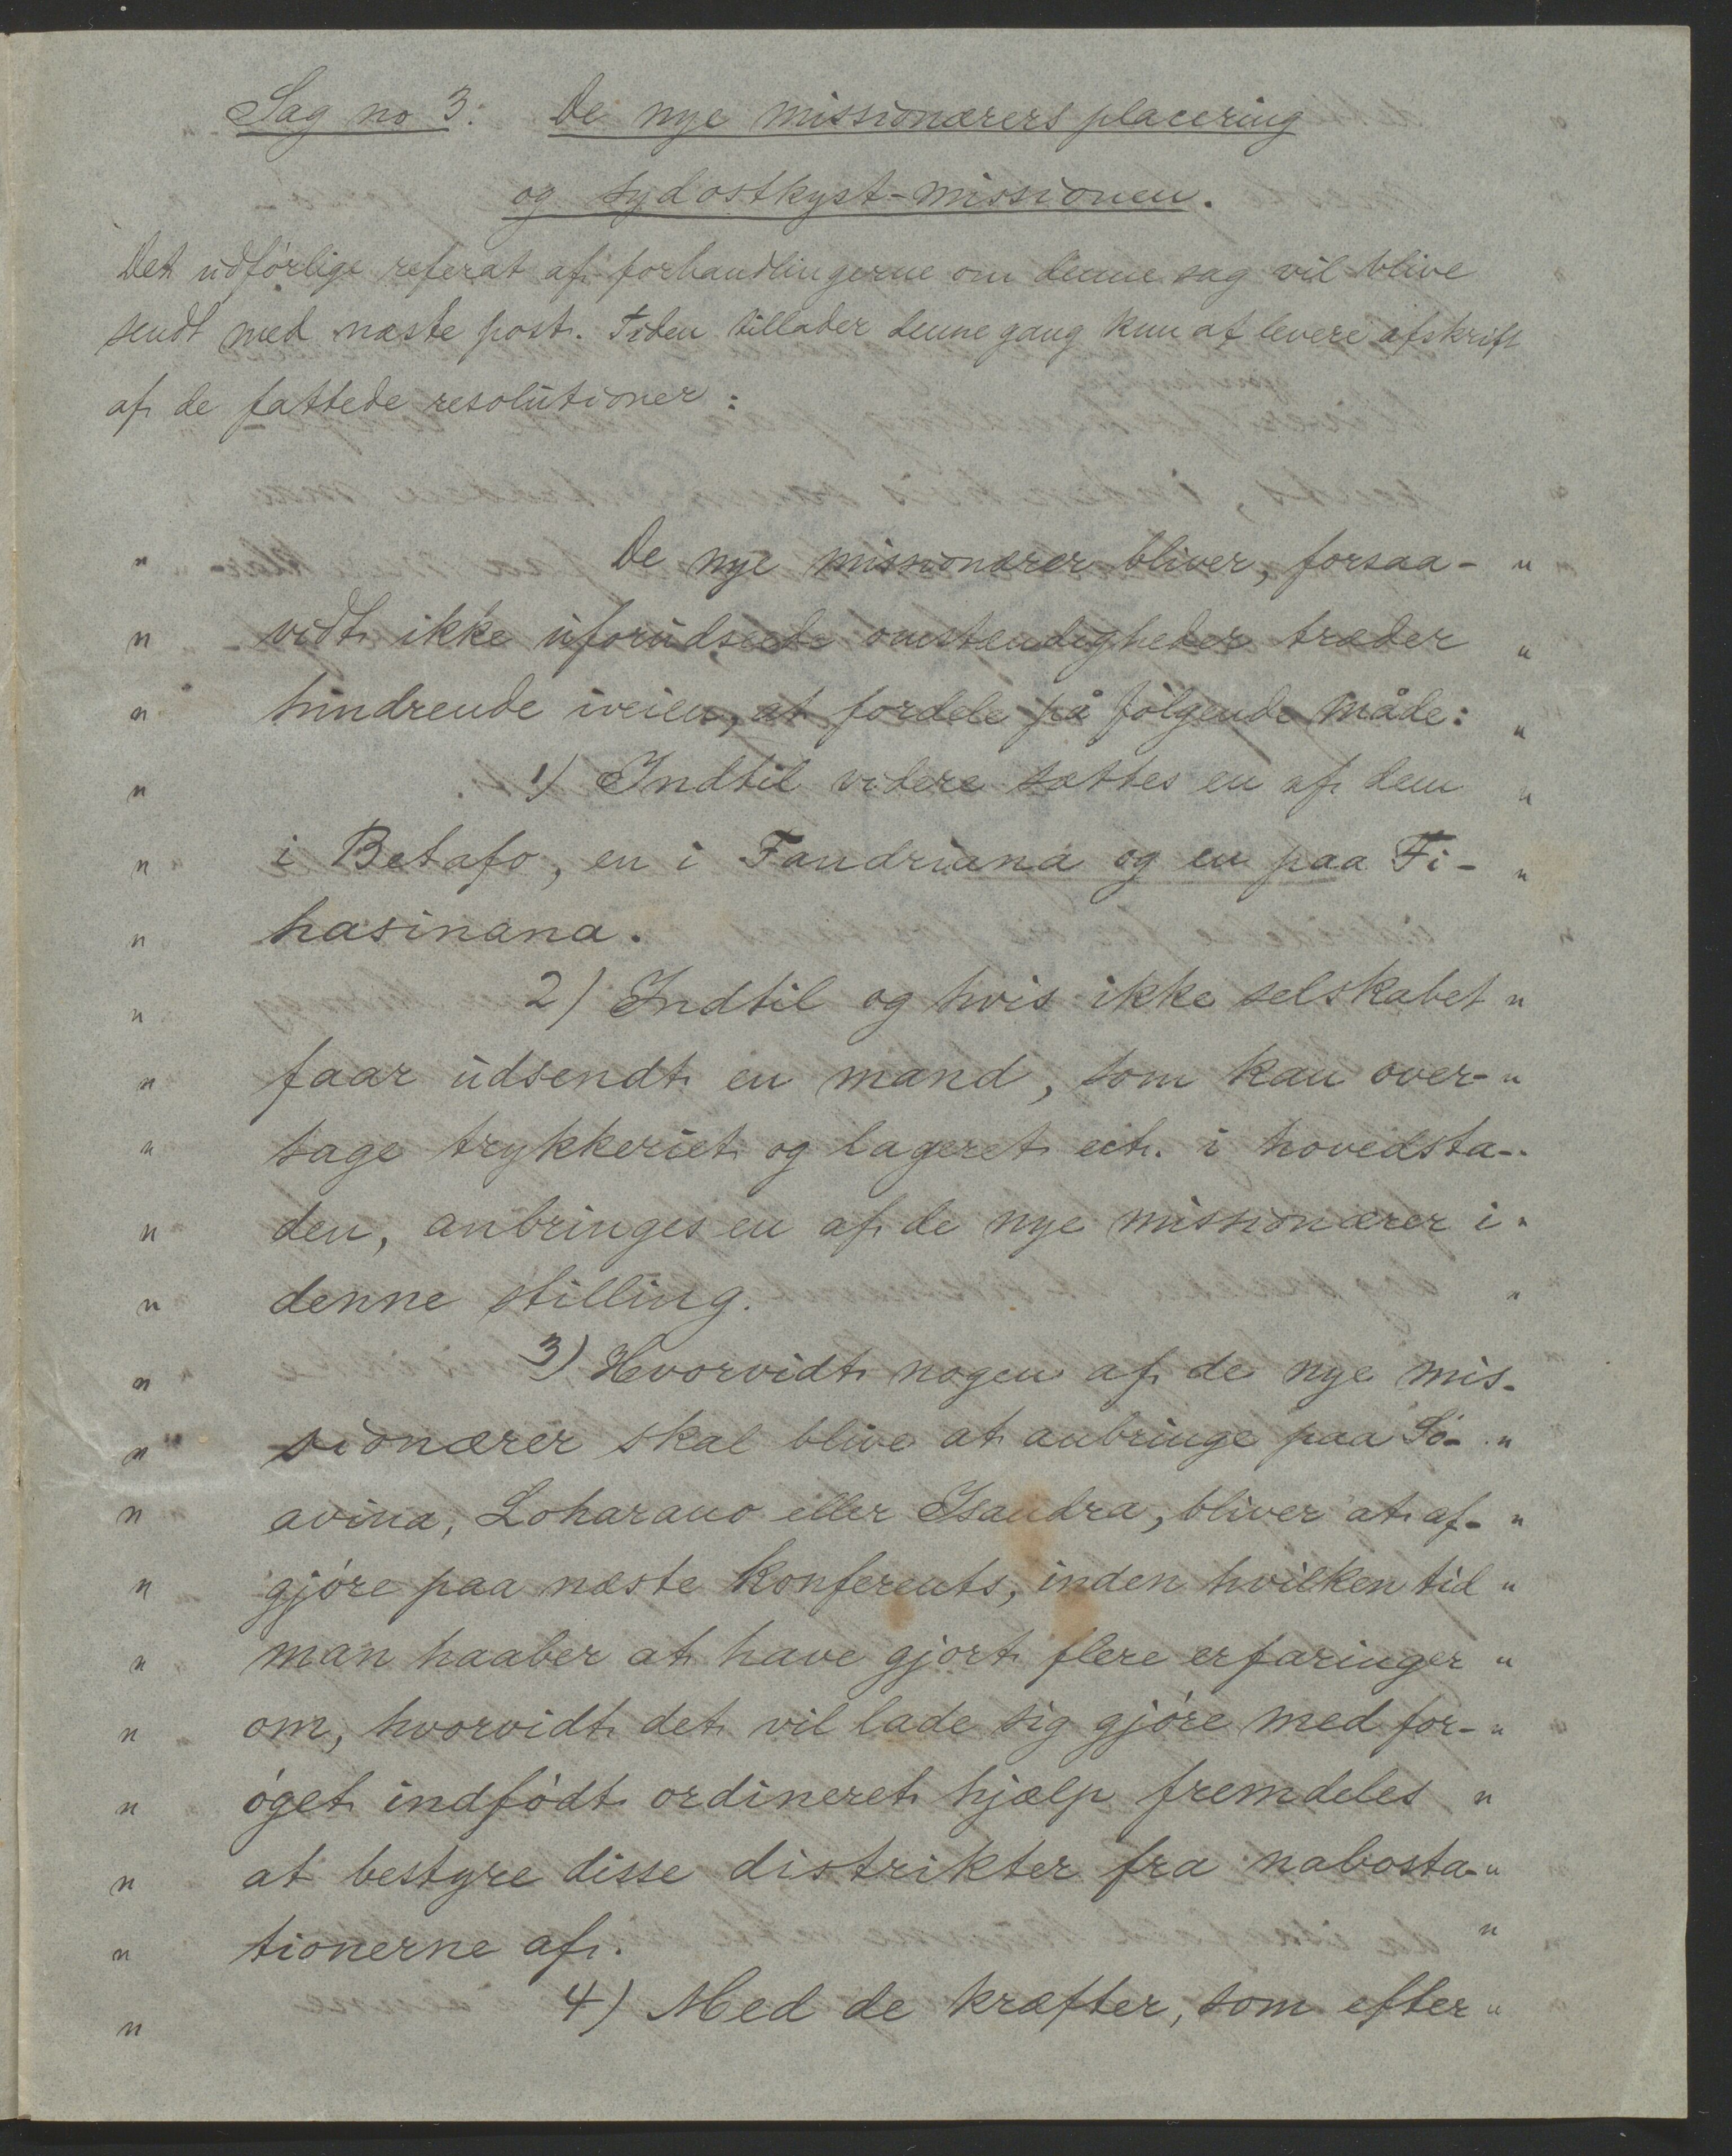 Sag no 3. De nye missionærers placering
og sydostkyst-missionen.
Det udførlige referat af forhandlingerne om denne sag vil blive
sendt med næste post. Tiden tillader denne gang kun at levere afskrift
af de fattede resolutioner:
" De nye missionærer bliver, forsaa- "
" vidt ikke uforudseede omstændigheder træder "
" hindrende iveien, at fordele på følgende måde: "
" 1) Indtil videre sættes en af dem "
" i Betafo, en i Fandriana og en paa Fi- "
" hasinana.
" 2) Indtil og hvis ikke selskabet "
" faar udsendt en mand, som kan over- "
" tage trykkeriet og lageret ect. i hovedsta-
" den, anbringes en af de nye missionærer i "
" denne stilling. "
" 3) Hvorvidt nogen af de nye mis-
" sionærer skal blive at anbringe paa So- "
" avina, Loharano eller Isandra, bliver at af- "
" gjøre paa næste konferents, inden hvilken tid "
" man haaber at have gjort flere erfaringer "
" om, hvorvidt det vil lade sig gjøre med for- "
" øget indfødt ordineret hjælp fremdeles "
" at bestyre disse distrikter fra nabosta- "
" tionerne af. "
" 4) Med de kræfter, som efter "